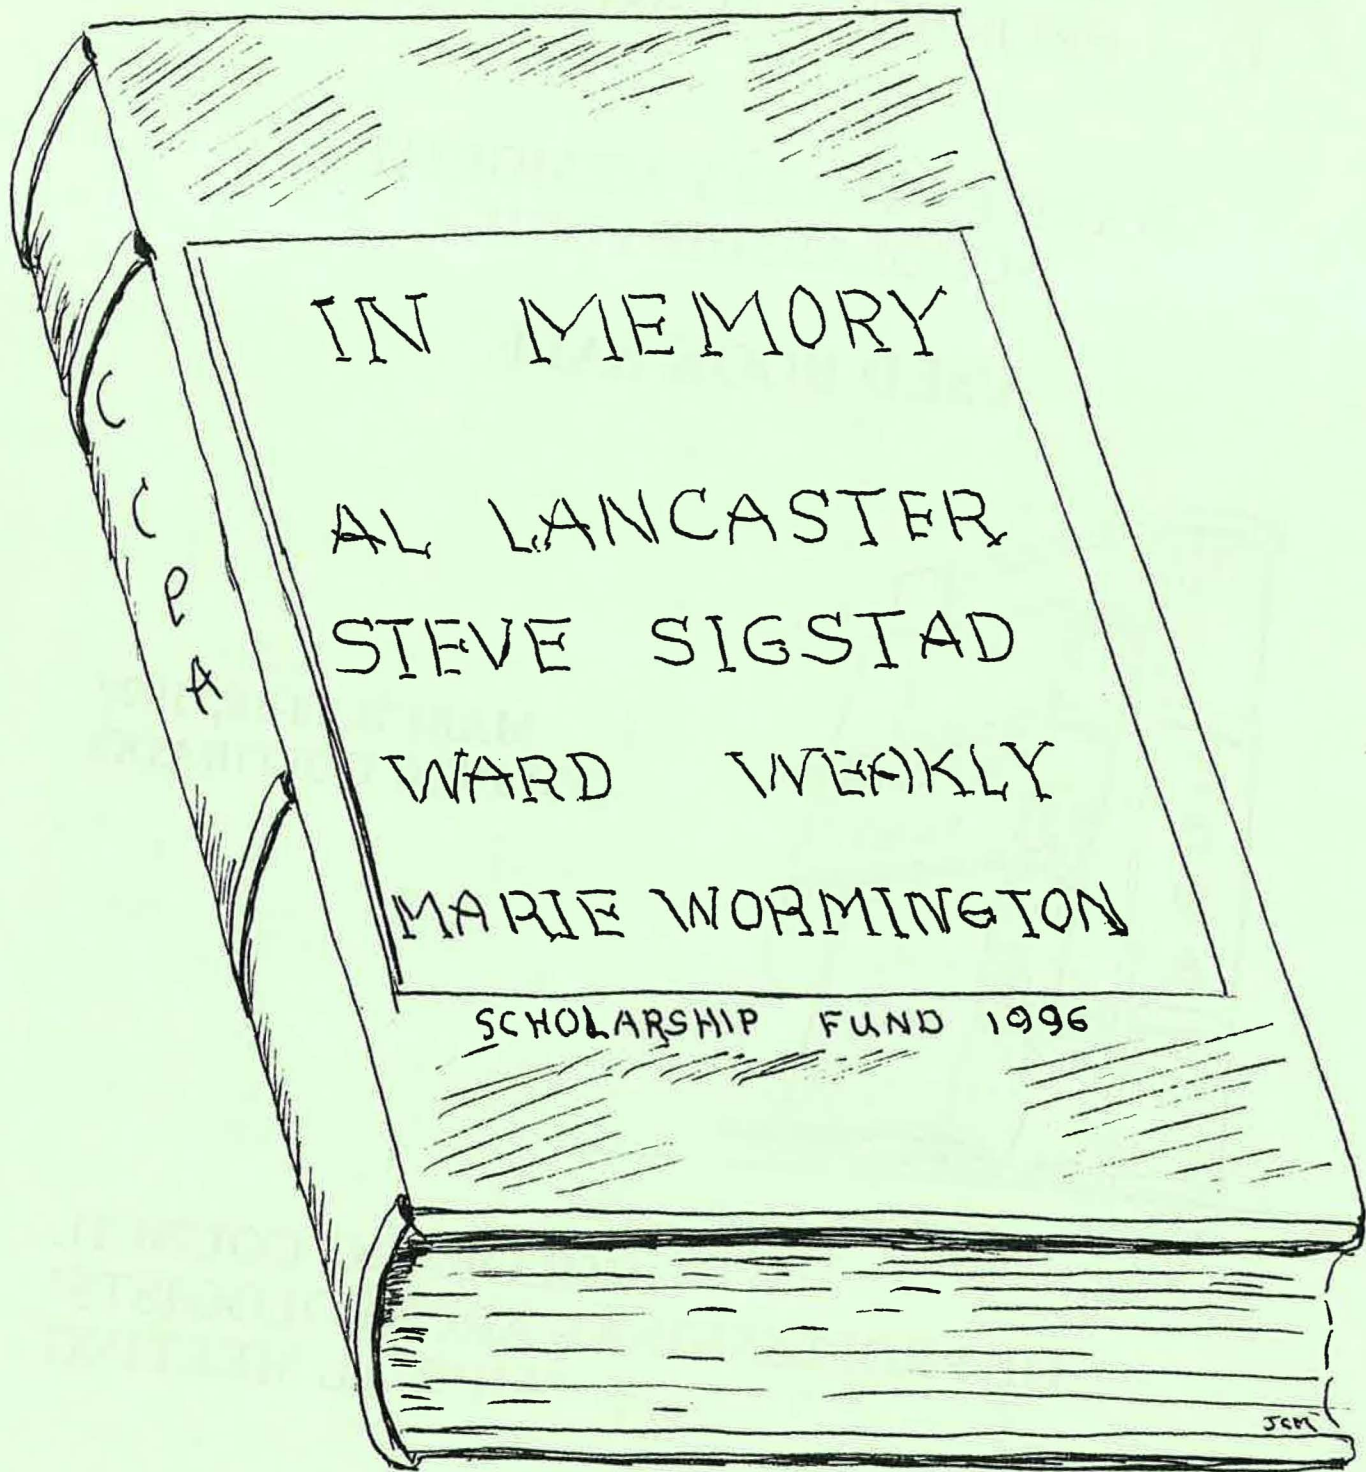 IN MEMORY
AL LANCASTER
STEVE SIGSTAD
WARD WEAKLY
MARIE WORMINGTON
SCHOLARSHIP FUND 1996
CCPA
JCM